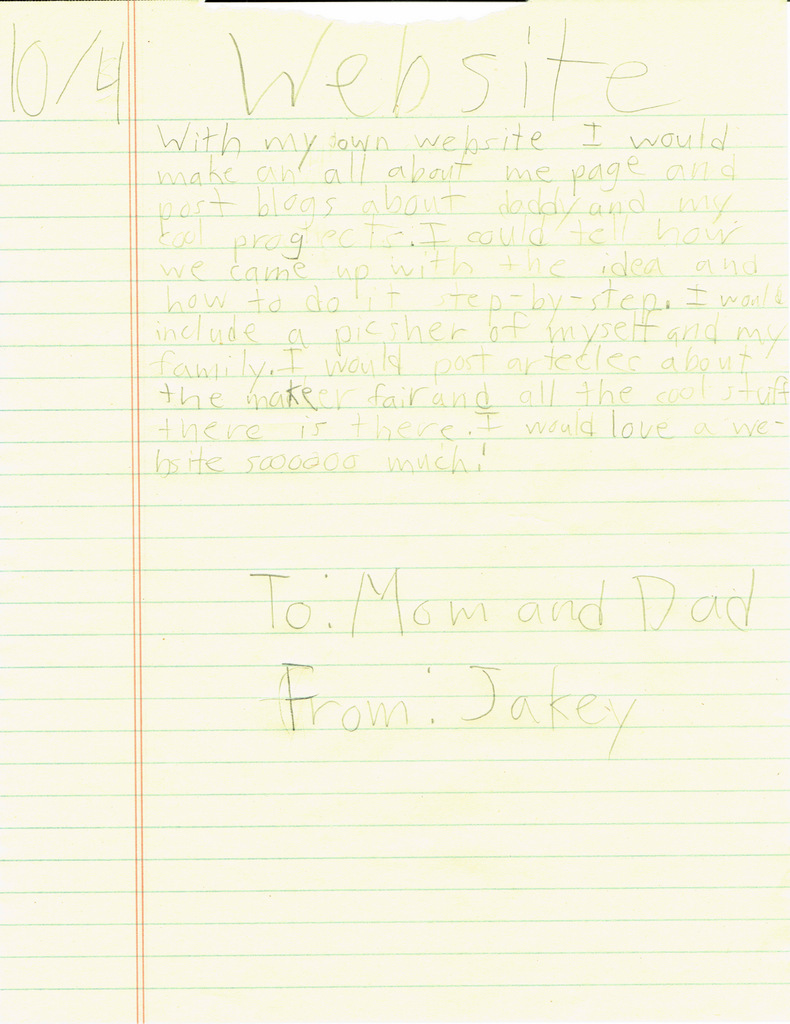 10/4 Website
With my own website I would
make an all about me page and
post blogs about daddy and my
cool progects. I could tell how
we came up with the idea and
how to do it step-by-step. I would
include a picsher of myself and my
family. I would post arteeles about
the makeer fair and all the cool stuff
there is there. I would love a we-
bsite soooooo much!
To: Mom and Dad
From: Jakey